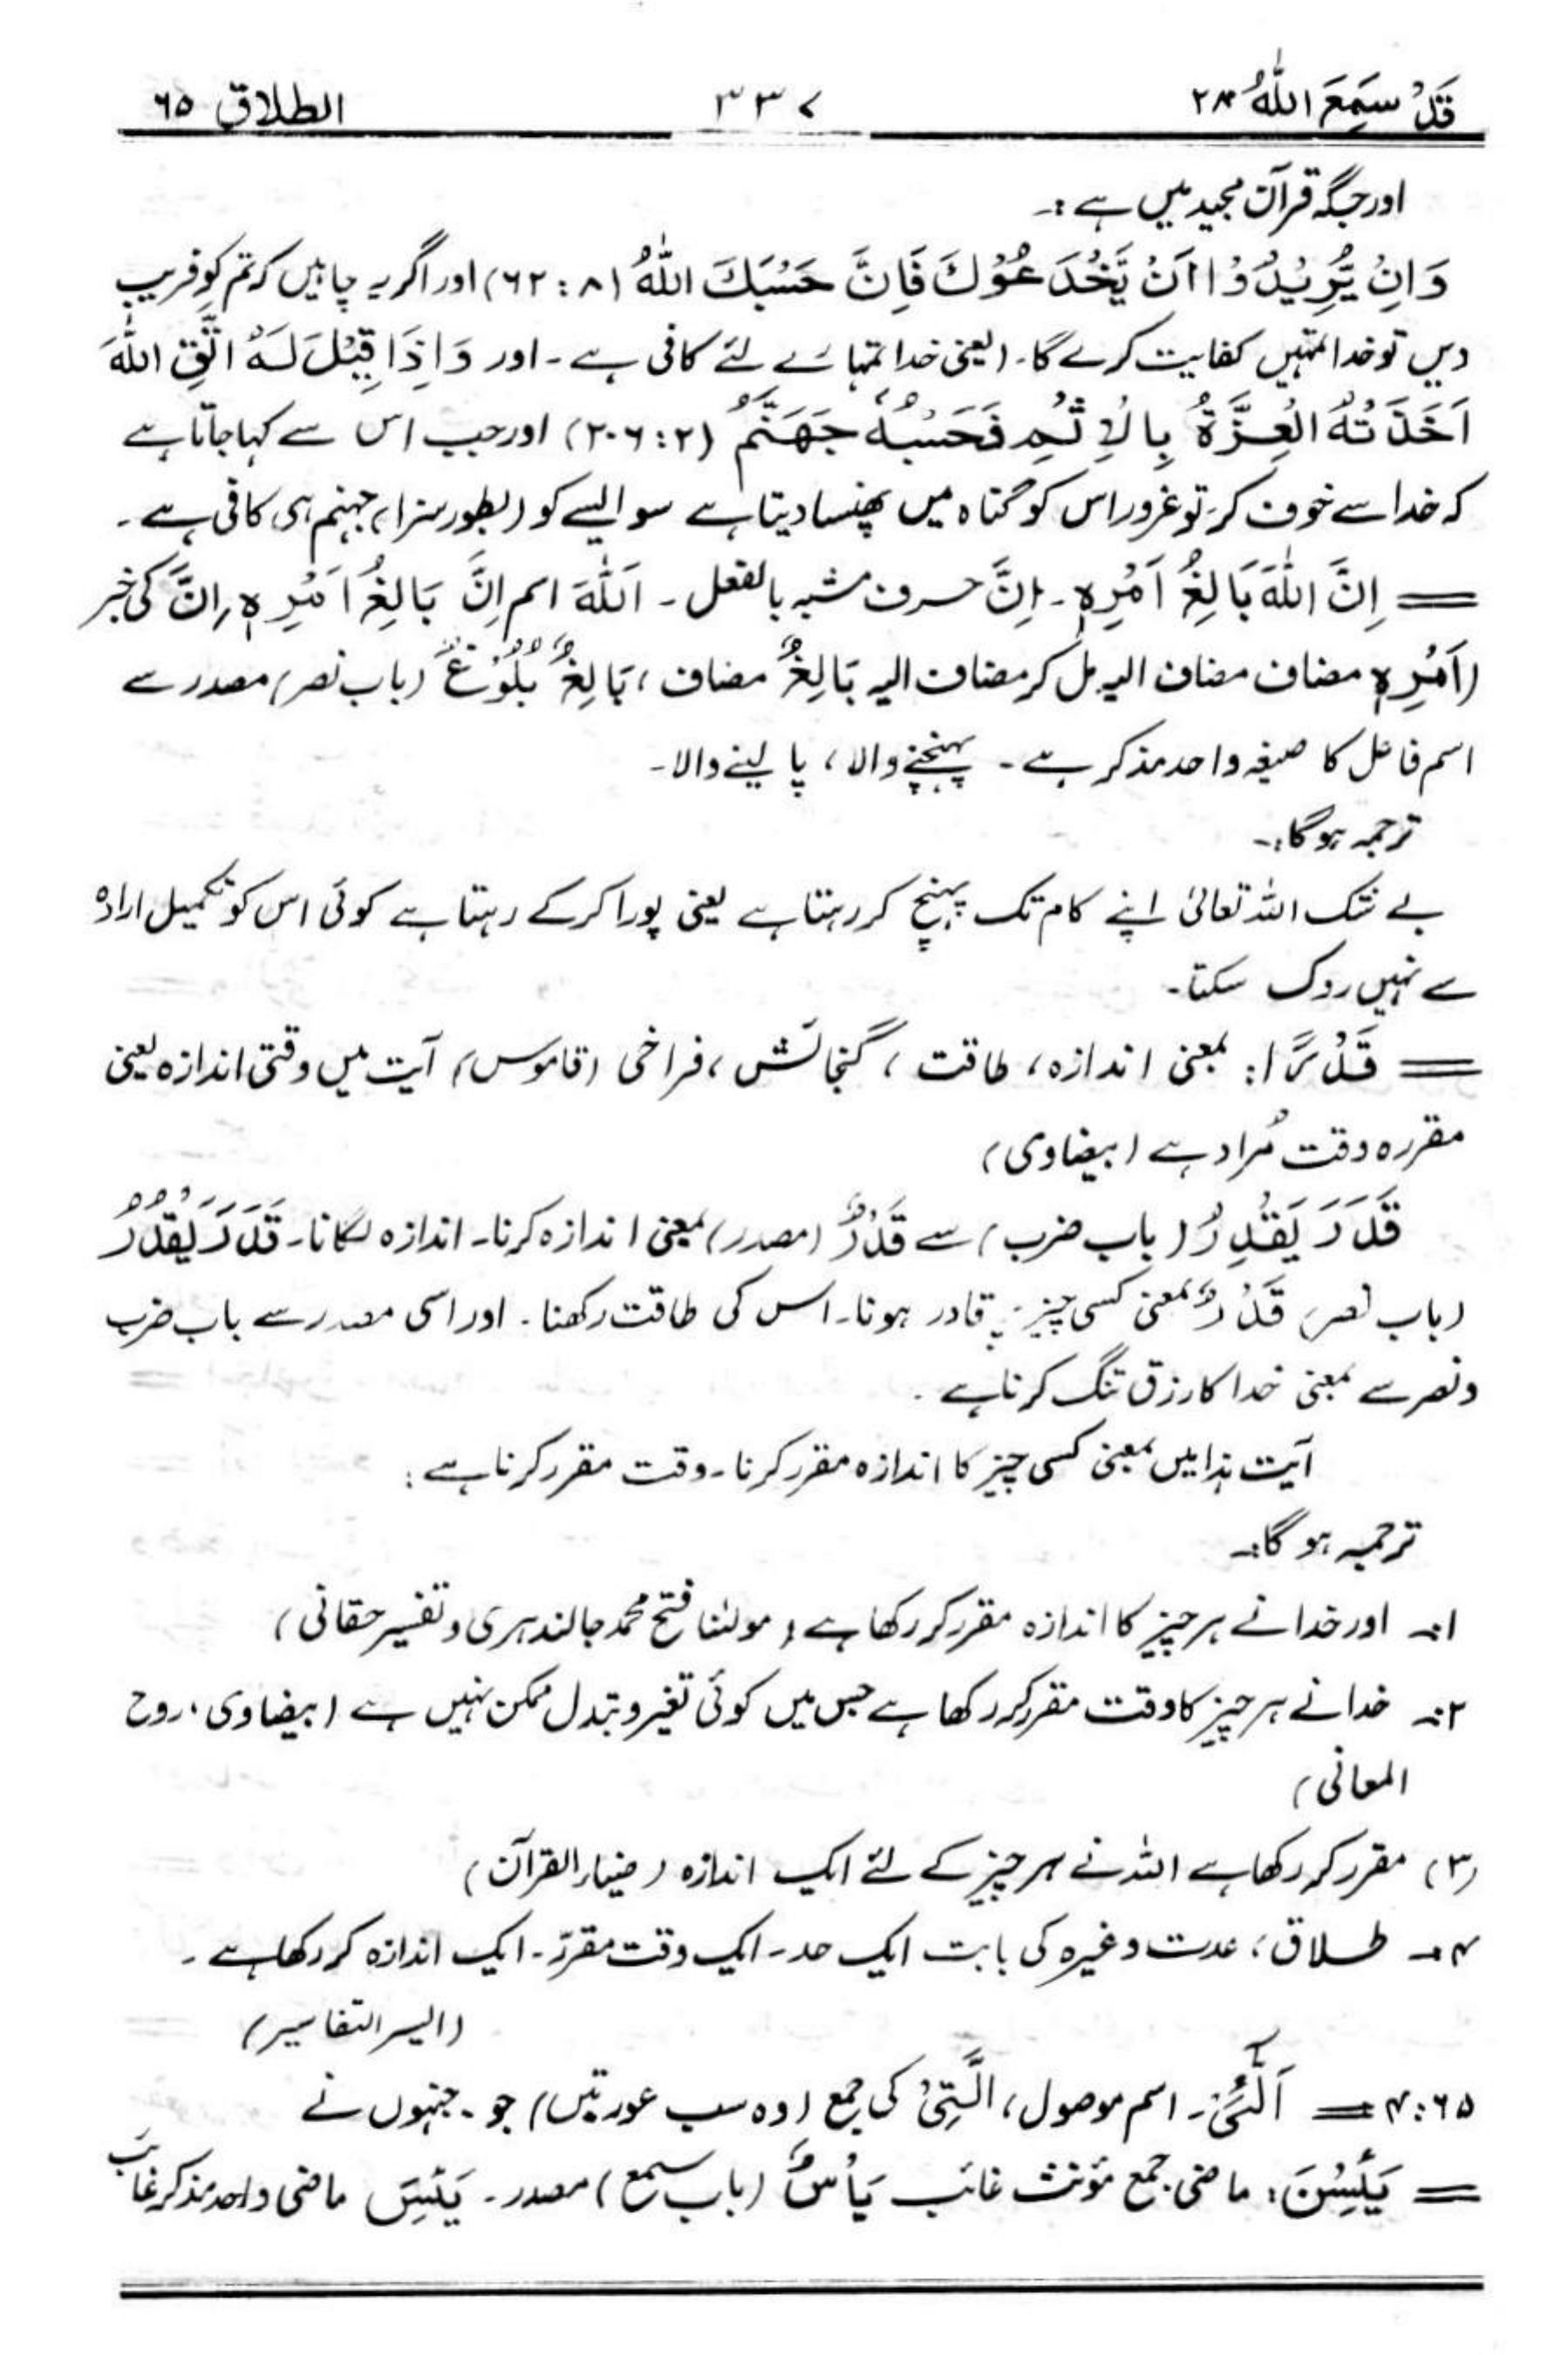 قَدْ سَمِعَ اللّٰهُ ۲۸ ۳۳۷ الطلاق ۶۵
اور جگہ قرآن مجید میں ہے:۔
وَاِنْ یُّرِیْدُوْا اَنْ یَّخْدَعُوْكَ فَاِنَّ حَسْبَكَ اللّٰهُ (۸ : ۶۲) اور اگر یہ چاہیں کہ تم کو فریب
دیں تو خدا تمہیں کفایت کرے گا۔ (یعنی خدا تمہارے لئے کافی ہے ۔ اور وَاِذَا قِیْلَ لَهُ اتَّقِ اللّٰهَ
اَخَذَتْهُ الْعِزَّةُ بِالْاِثْمِ فَحَسْبُهٗ جَهَنَّمُ (۲ : ۲۰۶) اور جب اس سے کہا جاتا ہے
کہ خدا سے خوف کر، تو غرور اس کو گناہ میں پھنسا دیتا ہے سو ایسے کو (بطور سزا) جہنم ہی کافی ہے ۔
= اِنَّ اللّٰهَ بَالِغُ اَمْرِهٖ ۔ اِنَّ حرف مشبہ بالفعل ۔ اَللّٰهَ اسم اِنَّ بَالِغُ اَمْرِهٖ، اِنَّ کی خبر
(اَمْرِهٖ مضاف مضاف الیہ مل کر مضاف الیہ بَالِغُ مضاف، بَالِغٌ بُلُوْغٌ (باب نصر) مصدر سے
اسم فاعل کا صیغہ واحد مذکر ہے ۔ پہنچنے والا ، پا لینے والا۔
ترجمہ ہوگا:۔
بے شک اللہ تعالیٰ اپنے کام تک پہنچ کر رہتا ہے یعنی پورا کرکے رہتا ہے کوئی اس کو تکمیل ارادہ
سے نہیں روک سکتا۔
= قَدْرًا : بمعنی اندازہ ، طاقت ، گنجائش ، فراخی (قاموس) آیت میں وقتی اندازہ یعنی
مقررہ وقت مُراد ہے (بیضاوی)
قَدَرَ یَقْدِرُ (باب ضرب) سے قَدْرٌ (مصدر) بمعنی اندازہ کرنا۔ اندازہ لگانا۔ قَدَرَ یَقْدُرُ
(باب نصر) قَدْرٌ بمعنی کسی چیز پر قادر ہونا۔ اس کی طاقت رکھنا ۔ اور اسی مصدر سے باب ضرب
ونصر سے بمعنی خدا کا رزق تنگ کرنا ہے ۔
آیت ہذا میں بمعنی کسی چیز کا اندازہ مقرر کرنا۔ وقت مقرر کرنا ہے :
ترجمہ ہو گا:۔
۱:۔ اور خدا نے ہر چیز کا اندازہ مقرر کر رکھا ہے (مولٰنا فتح محمد جالندہری و تفسیر حقانی)
۲:۔ خدا نے ہر چیز کا وقت مقرر کر رکھا ہے جس میں کوئی تغیر و تبدل ممکن نہیں ہے (بیضاوی ، روح
المعانی)
(۳) مقرر کر رکھا ہے اللہ نے ہر چیز کے لئے ایک اندازہ (ضیاء القرآن)
۴:۔ طلاق ، عدت وغیرہ کی بابت ایک حد۔ ایک وقت مقررّ ۔ ایک اندازہ کر رکھا ہے ۔
(ایسر التفاسیر)
۶۵ : ۴ = اَلّٰٓئِیْ ۔ اسم موصول ، الَّتِیْ کی جمع (وہ سب عورتیں) جو ۔ جنہوں نے
= یَئِسْنَ : ماضی جمع مؤنث غائب یَأْسٌ (باب سمع) مصدر ۔ یَئِسَ ماضی واحد مذکر غائب